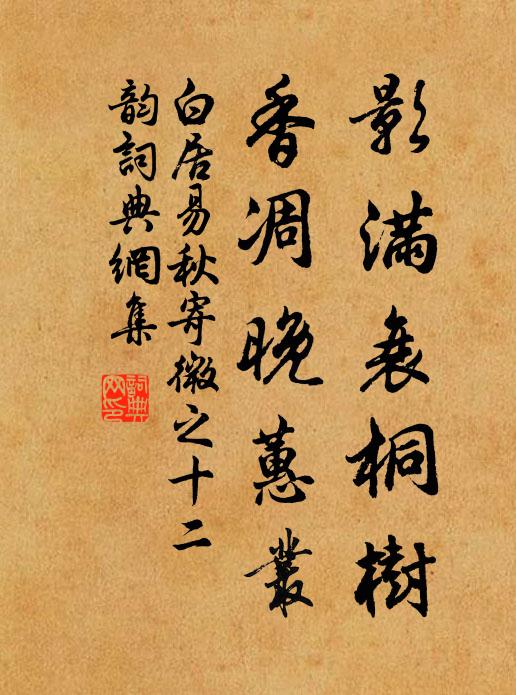 影满衰桐樹
香凋晚蕙叢
白居易秋寄微之十二
韵詞典網集
詞典网印